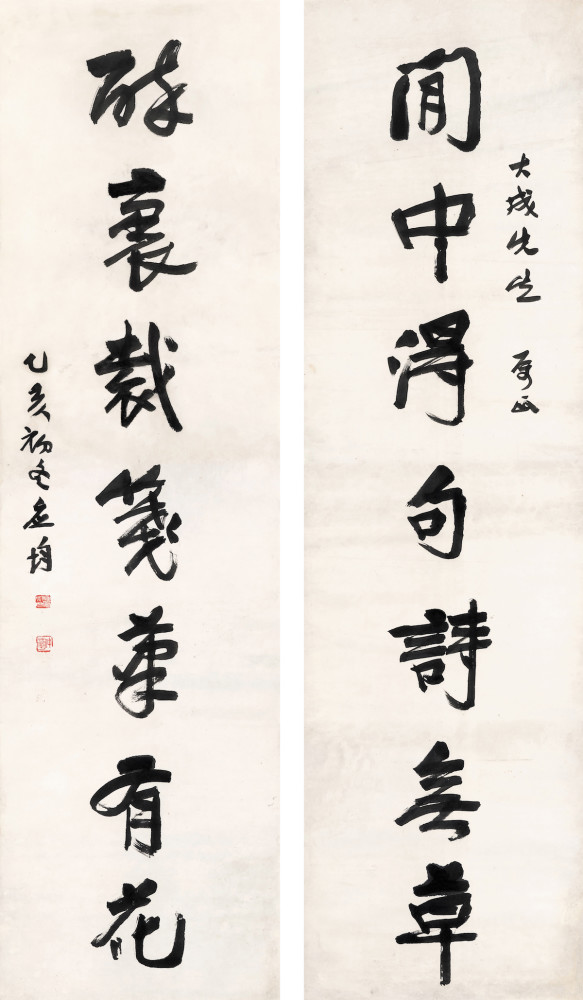 大成先生 属正
閒中得句詩無草
醉裏裁箋筆有花
乙亥初冬